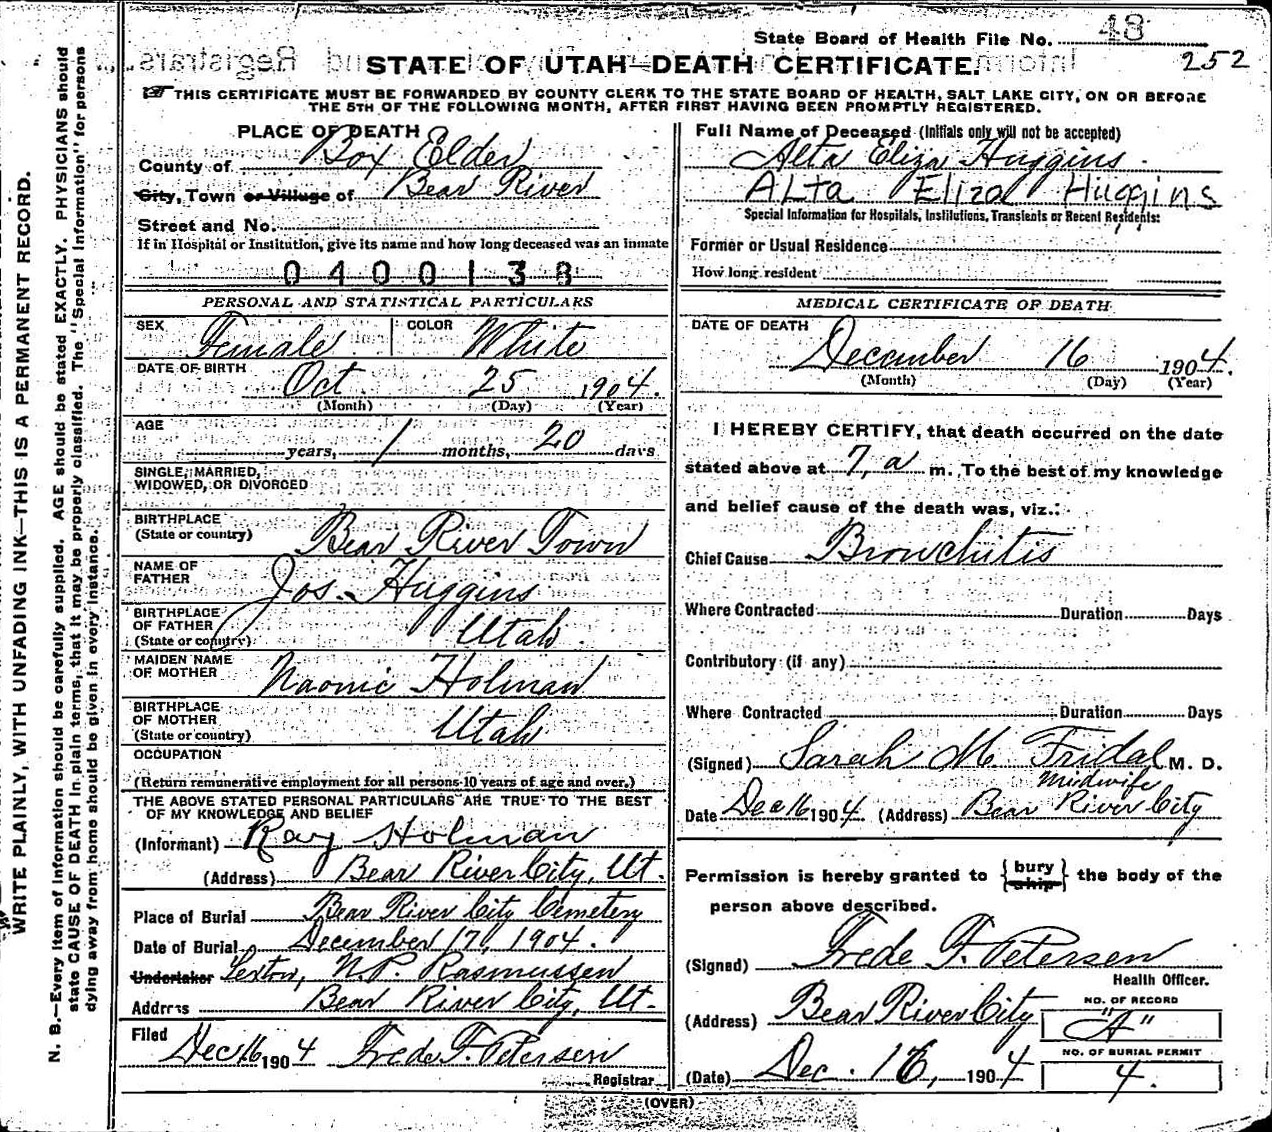 State Board of Health File No. 48
252
STATE OF UTAH—DEATH CERTIFICATE.
THIS CERTIFICATE MUST BE FORWARDED BY COUNTY CLERK TO THE STATE BOARD OF HEALTH, SALT LAKE CITY, ON OR BEFORE
THE 5TH OF THE FOLLOWING MONTH, AFTER FIRST HAVING BEEN PROMPTLY REGISTERED.
WRITE PLAINLY, WITH UNFADING INK—THIS IS A PERMANENT RECORD.
N. B.—Every item of information should be carefully supplied. AGE should be stated EXACTLY. PHYSICIANS should
state CAUSE OF DEATH in plain terms, that it may be properly classified. The "Special Information" for persons
dying away from home should be given in every instance.
PLACE OF DEATH
County of Box Elder
City, Town or Village of Bear River
Street and No.
If in Hospital or Institution, give its name and how long deceased was an inmate
0400138
PERSONAL AND STATISTICAL PARTICULARS
SEX Female COLOR White
DATE OF BIRTH Oct 25 1904.
(Month) (Day) (Year)
AGE years, 1 months, 20 days
SINGLE, MARRIED,
WIDOWED, OR DIVORCED
BIRTHPLACE
(State or country) Bear River Town
NAME OF
FATHER Jos. Huggins
BIRTHPLACE
OF FATHER
(State or country) Utah.
MAIDEN NAME
OF MOTHER Naomie Holman
BIRTHPLACE
OF MOTHER
(State or country) Utah
OCCUPATION
(Return remunerative employment for all persons 10 years of age and over.)
THE ABOVE STATED PERSONAL PARTICULARS ARE TRUE TO THE BEST
OF MY KNOWLEDGE AND BELIEF
(Informant) Ray Holman
(Address) Bear River City, Ut.
Place of Burial Bear River City Cemetery
Date of Burial December 17, 1904.
Undertaker Sexton, N.P. Rasmussen
Address Bear River City, Ut.
Filed Dec 16 1904 Frede F. Petersen
Registrar
Full Name of Deceased (Initials only will not be accepted)
Alta Eliza Huggins.
ALta Eliza Huggins
Special Information for Hospitals, Institutions, Transients or Recent Residents:
Former or Usual Residence
How long resident
MEDICAL CERTIFICATE OF DEATH
DATE OF DEATH
December 16 1904.
(Month) (Day) (Year)
I HEREBY CERTIFY, that death occurred on the date
stated above at 7, a m. To the best of my knowledge
and belief cause of the death was, viz.:
Chief Cause Bronchitis
Where Contracted Duration Days
Contributory (if any)
Where Contracted Duration Days
(Signed) Sarah M. Fridal M. D.
Midwife
Date Dec 16 1904. (Address) Bear River City
Permission is hereby granted to { bury ship } the body of the
person above described.
(Signed) Frede F. Petersen
Health Officer.
(Address) Bear River City
NO. OF RECORD
"A"
NO. OF BURIAL PERMIT
4.
(Date) Dec. 16, 1904
(OVER)